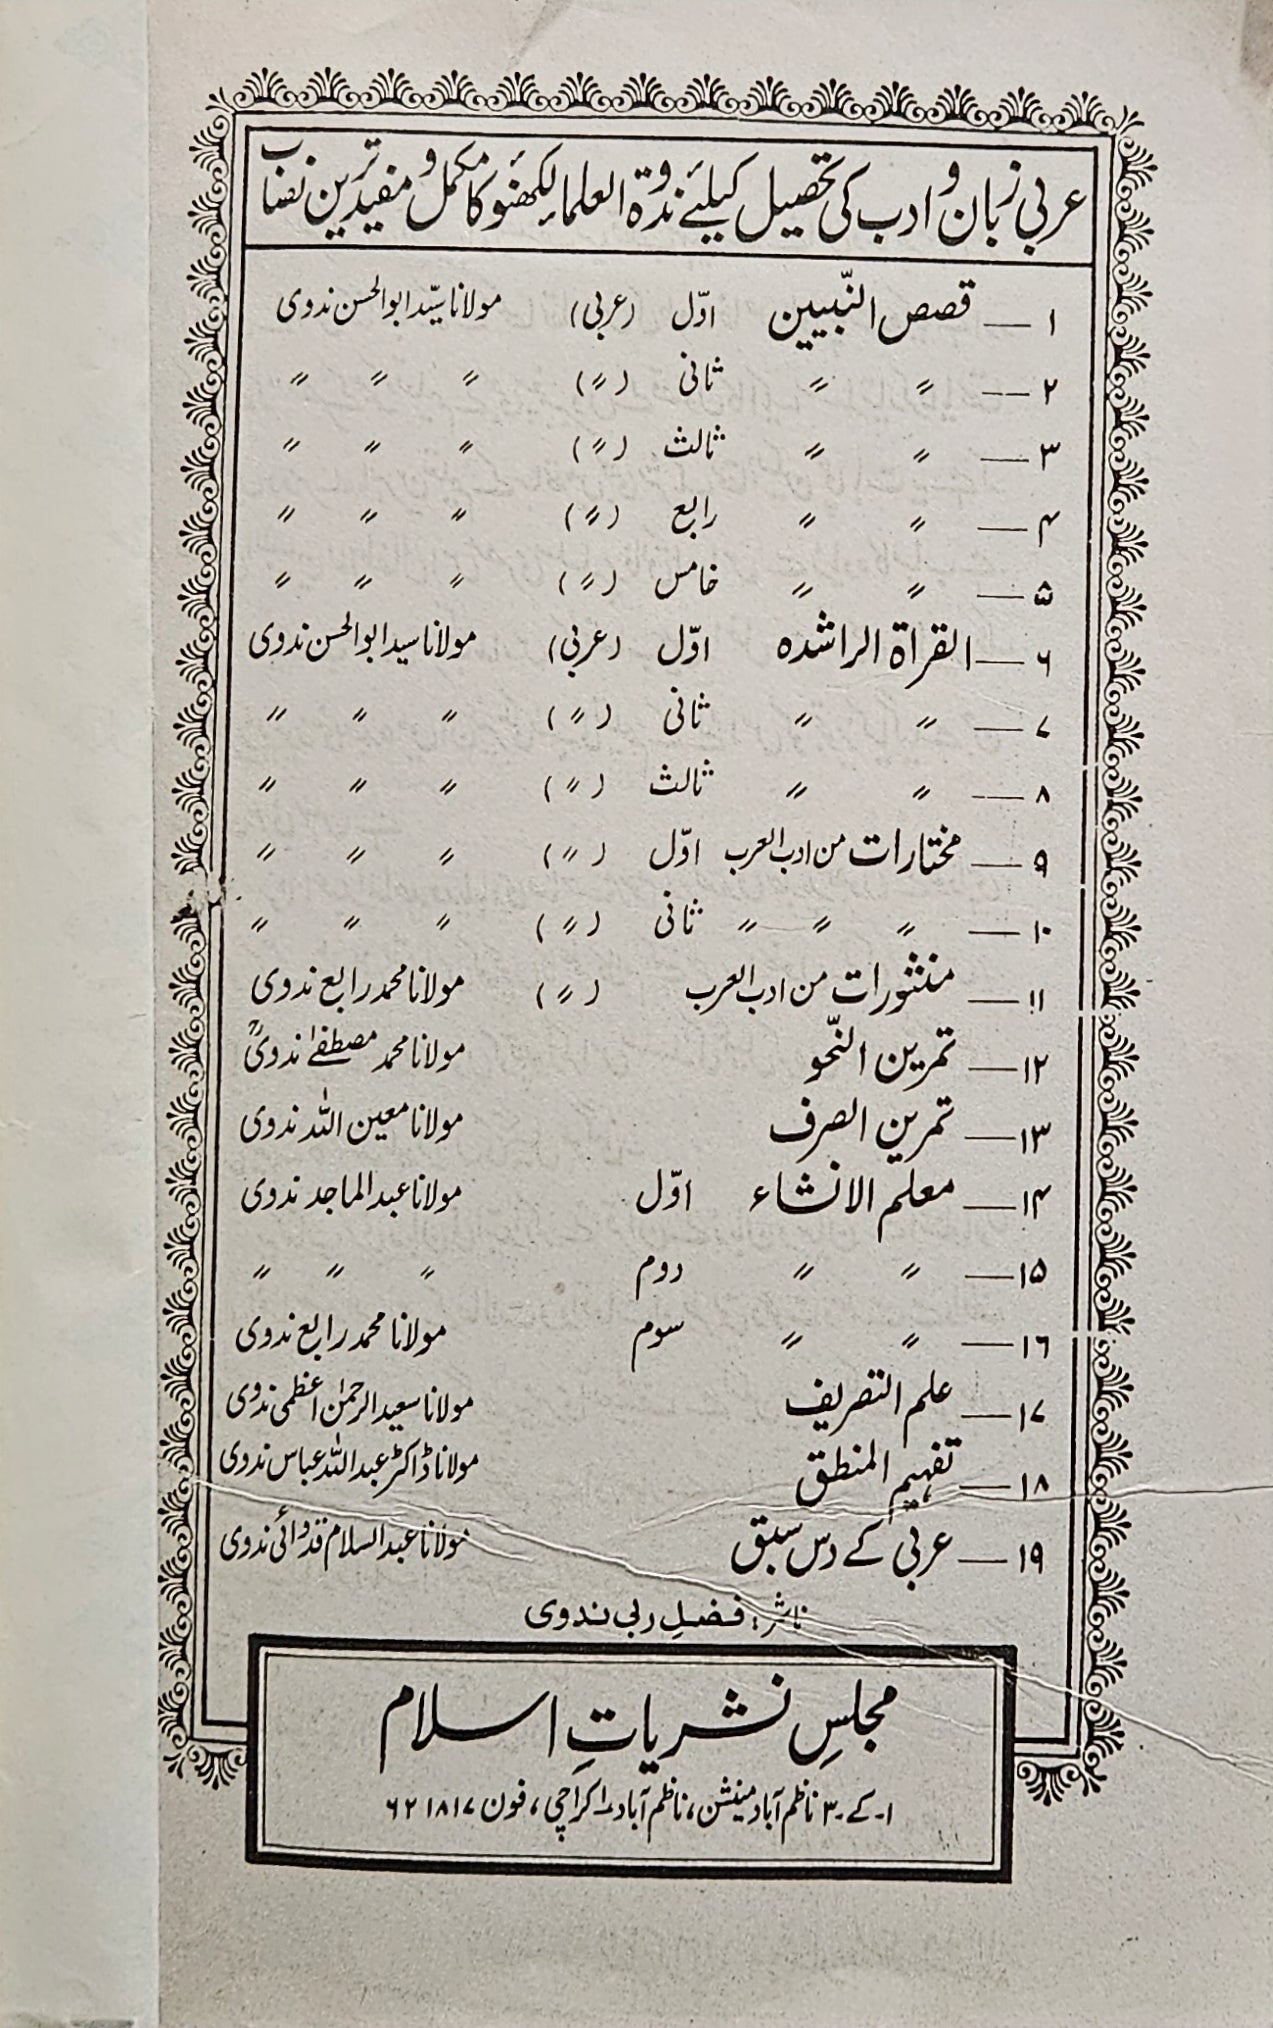 عربی زبان و ادب کی تحصیل کیلئے ندوۃ العلماء لکھنؤ کا مکمل و مفید ترین نصاب
۱ — قصص النّبیین اوّل (عربی) مولانا سیّد ابوالحسن ندوی
۲ — 〃 〃 ثانی (〃) 〃 〃 〃
۳ — 〃 〃 ثالث (〃) 〃 〃 〃
۴ — 〃 〃 رابع (〃) 〃 〃 〃
۵ — 〃 〃 خامس (〃) 〃 〃 〃
۶ — القراۃ الراشدہ اوّل (عربی) مولانا سید ابوالحسن ندوی
۷ — 〃 〃 ثانی (〃) 〃 〃 〃
۸ — 〃 〃 ثالث (〃) 〃 〃 〃
۹ — مختارات من ادب العرب اوّل (〃) 〃 〃 〃
۱۰ — 〃 〃 〃 ثانی (〃) 〃 〃 〃
۱۱ — منثورات من ادب العرب (〃) مولانا محمد رابع ندوی
۱۲ — تمرین النّحو مولانا محمد مصطفےٰ ندویؒ
۱۳ — تمرین الصرف مولانا معین اللہ ندوی
۱۴ — معلم الانشاء اوّل مولانا عبدالماجد ندوی
۱۵ — 〃 〃 دوم 〃 〃 〃
۱۶ — 〃 〃 سوم مولانا محمد رابع ندوی
۱۷ — علم التصریف مولانا سعید الرحمٰن اعظمی ندوی
۱۸ — تفہیم المنطق مولانا ڈاکٹر عبداللہ عباس ندوی
۱۹ — عربی کے دس سبق مولانا عبدالسلام قدوائی ندوی
ناشر: فضلِ ربی ندوی
مجلسِ نشریاتِ اسلام
۱۔ کے۔ ۳ ناظم آباد مینشن، ناظم آباد ۱ کراچی، فون ۶۲۱۸۱۷